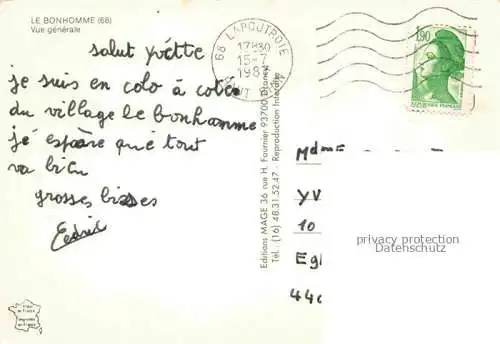 LE BONHOMME (68)
Vue générale
salut yvette
je suis en colo à coté
du village le bonhomme
jé éspère què tout
va bien
grosses bisses
Cédric
68 LAPOUTROIE
17H30
15-7
198
HAUT RHIN
1,90
REPUBLIQUE FRANÇAISE
Editions MAGE 36 rue H. Fournier 93700 Drancy
Tél.: (16) 48.31.52.47 - Reproduction Interdite
Mdme
YV
10
Egl
440
privacy protection
Datenschutz